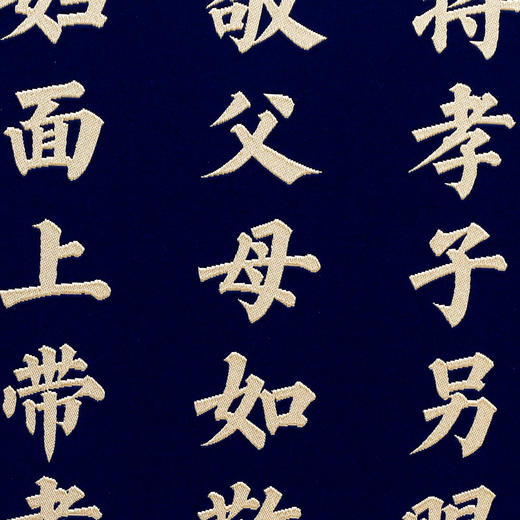 孝子另
敬父母如敬
面上带